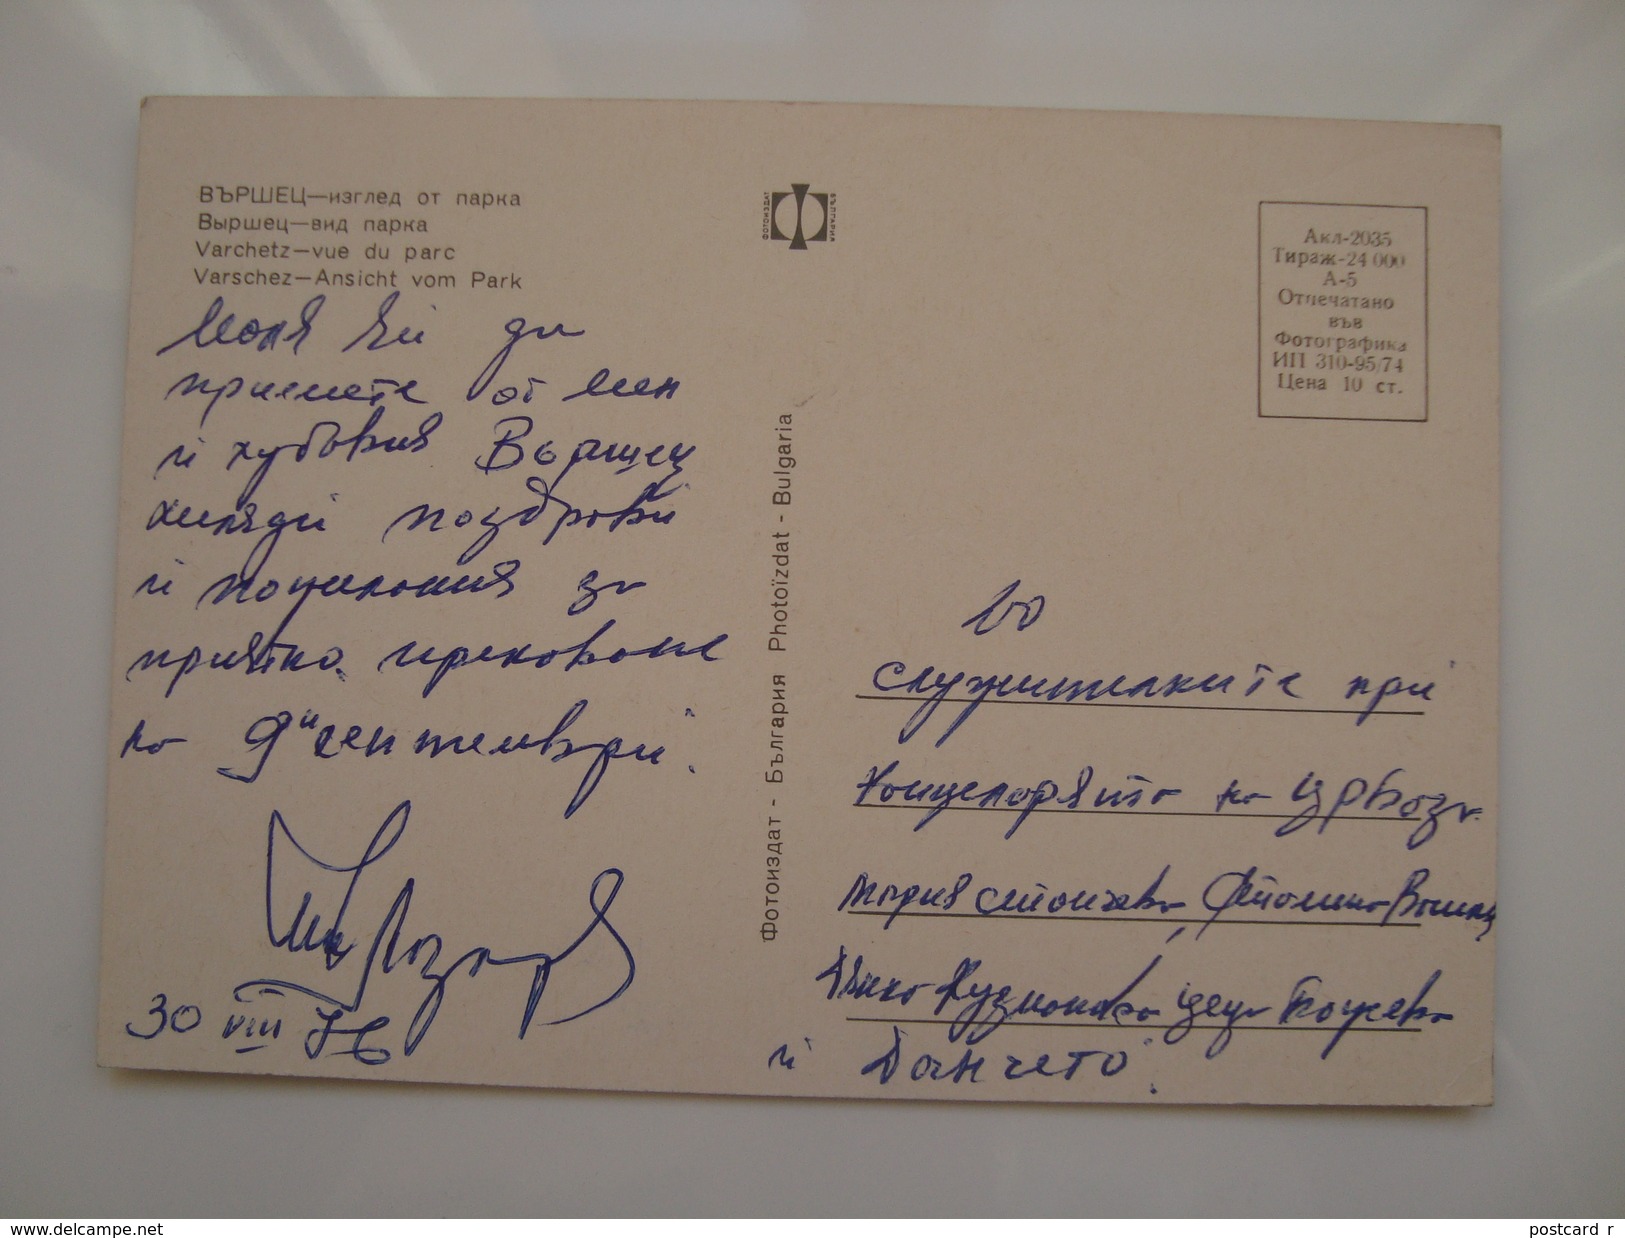 ВЪРШЕЦ—изглед от парка
Выршец—вид парка
Varchetz—vue du parc
Varschez—Ansicht vom Park
Моля Ви да
приемете от мен
и хубавия Вършец
хиляди поздрави
и пожелания за
приятно прекарване
на 9ти септември.
30 VIII 76
ФОТОИЗДАТ
БЪЛГАРИЯ
Фотоиздат - България Photoïzdat - Bulgaria
Акл-2035
Тираж-24 000
А-5
Отпечатано
във
Фотографика
ИП 310-95/74
Цена 10 ст.
До
служителките при
Канцеларията на
Мария Стоичева,
Цеца
и Данчето.
delcampe.net
postcard_r